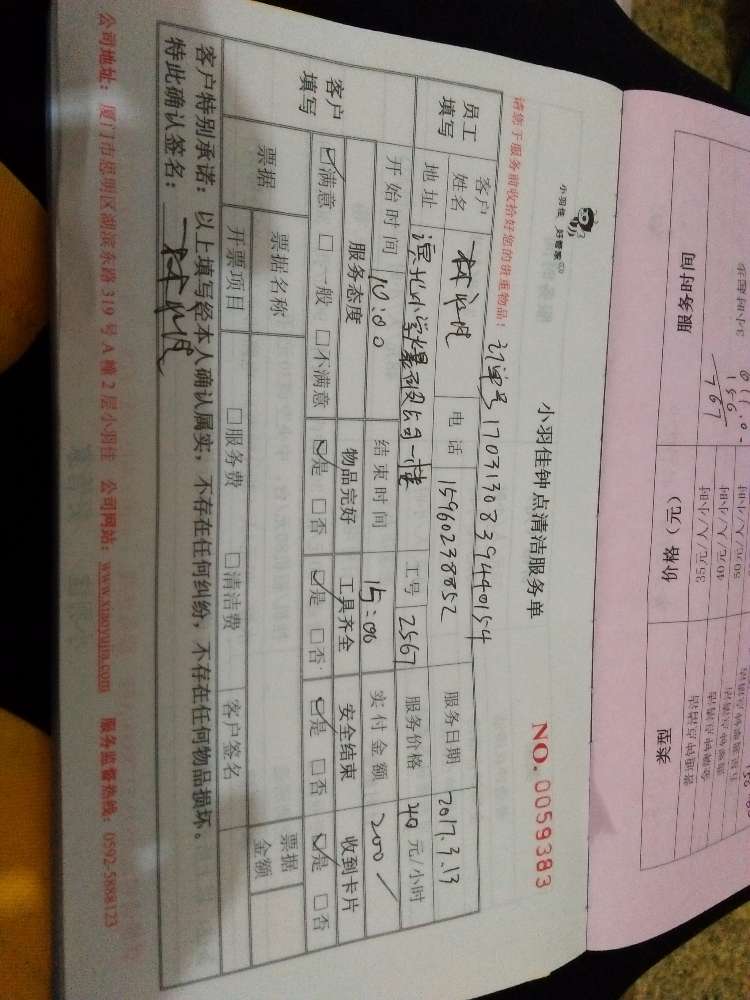 小羽佳 好管家
小羽佳钟点清洁服务单
NO. 0059383
请您于服务前收拾好您的贵重物品!
订单号 1703130839440154
员工填写
客户姓名
电话 15960238852
服务日期 2017.3.13
地址
工号 2567
服务价格 40 元/小时
客户填写
开始时间 10:00
结束时间 15:00
实付金额 200
服务态度 物品完好 工具齐全 安全结束 收到卡片
☑满意 □一般 □不满意 ☑是 □否 ☑是 □否 ☑是 □否 ☑是 □否
票据
票据名称
票据金额
开票项目 □服务费 □清洁费 客户签名
客户特别承诺:以上填写经本人确认属实,不存在任何纠纷,不存在任何物品损坏。
特此确认签名:
公司地址:厦门市思明区湖滨东路 319 号 A 幢 2 层小羽佳 公司网站:www.xiaoyujia.com 服务监督热线:0592-5888123
服务时间 价格(元) 类型
3小时起
35元/人/小时
40元/人/小时
50元/人/小时